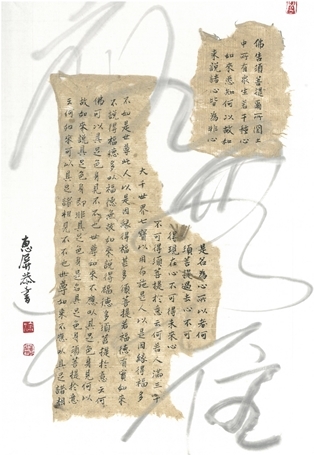 佛告須菩提爾所國土
中所有眾生若干種心
如來悉知何以故如
來說諸心皆為非心
是名為心所以者何
須菩提過去心不可
得現在心不可得未來心
不可得須菩提於意云何若人滿三千
大千世界七寶以用布施是人以是因緣得福多
不如是世尊此人以是因緣得福甚多須菩提若福德有實如來
不說得福德多以福德無故如來說得福德多須菩提於意云何
佛可以具足色身見不不也世尊如來不應以具足色身見何以
故如來說具足色身即非具足色身是名具足色身須菩提於意
云何如來可以具足諸相見不不也世尊如來不應以具足諸相
惠屏恭書